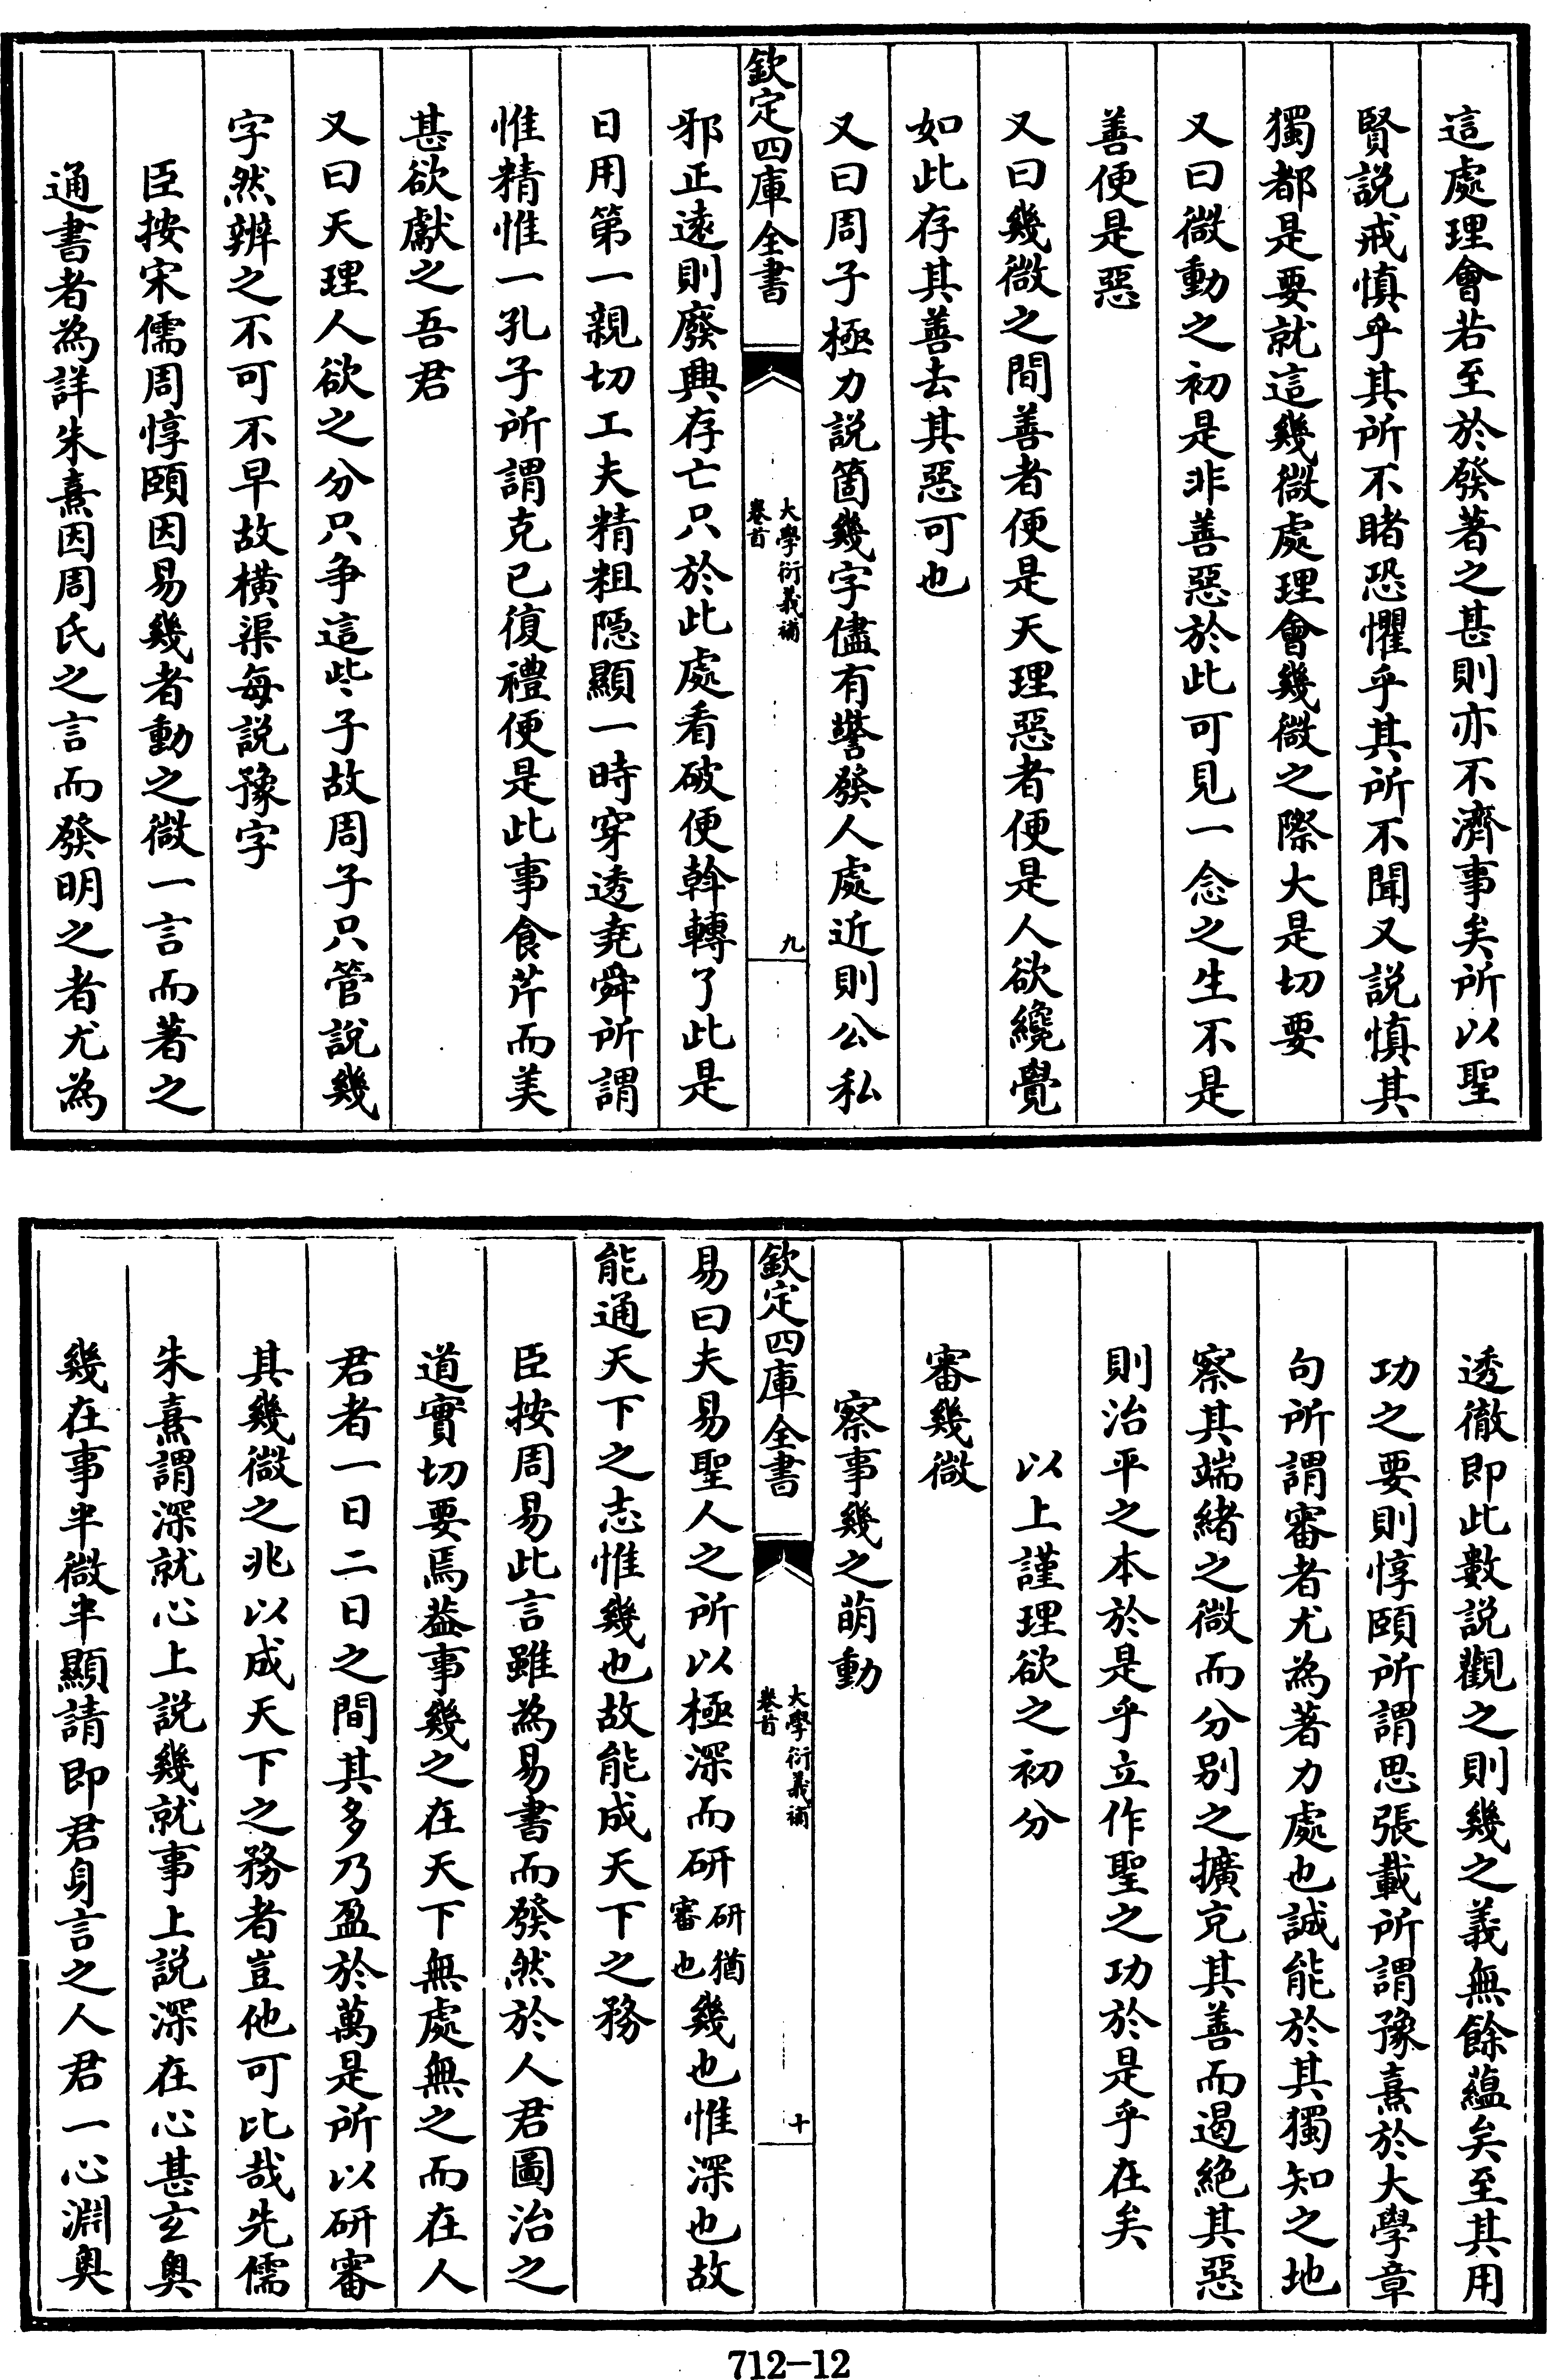 這處理會若至於發著之甚則亦不濟事矣所以聖
賢説戒慎乎其所不睹恐懼乎其所不聞又説慎其
獨都是要就這幾微處理會幾微之際大是切要
又曰微動之初是非善惡於此可見一念之生不是
善便是惡
又曰幾微之間善者便是天理惡者便是人欲纔覺
如此存其善去其惡可也
又曰周子極力説箇幾字儘有警發人處近則公私
欽定四庫全書
大學衍義補
卷首
九
邪正逺則廢興存亡只於此處看破便斡轉了此是
日用第一親切工夫精粗隠顯一時穿透堯舜所謂
惟精惟一孔子所謂克己復禮便是此事食芹而美
甚欲獻之吾君
又曰天理人欲之分只争這些子故周子只管説幾
字然辨之不可不早故横渠每説豫字
臣按宋儒周惇頤因易幾者動之微一言而著之
通書者為詳朱熹因周氏之言而發明之者尤為
透徹即此數説觀之則幾之義無餘藴矣至其用
功之要則惇頤所謂思張載所謂豫熹於大學章
句所謂審者尤為著力處也誠能於其獨知之地
察其端緒之微而分别之擴充其善而遏絶其惡
則治平之本於是乎立作聖之功於是乎在矣
以上謹理欲之初分
審幾微
察事幾之萌動
欽定四庫全書
大學衍義補
卷首
十
易曰夫易聖人之所以極深而研研猶審也幾也惟深也故
能通天下之志惟幾也故能成天下之務
臣按周易此言雖為易書而發然於人君圖治之
道實切要焉葢事幾之在天下無處無之而在人
君者一日二日之間其多乃盈於萬是所以研審
其幾微之兆以成天下之務者豈他可比哉先儒
朱熹謂深就心上説幾就事上説深在心甚玄奥
幾在事半微半顯請即君身言之人君一心淵奥
712-12